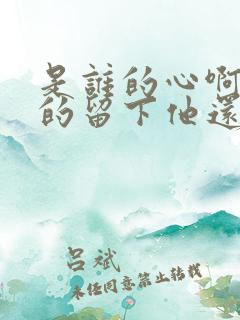 是誰的心啊
的留下他還
呂斌
未经同意禁止转载